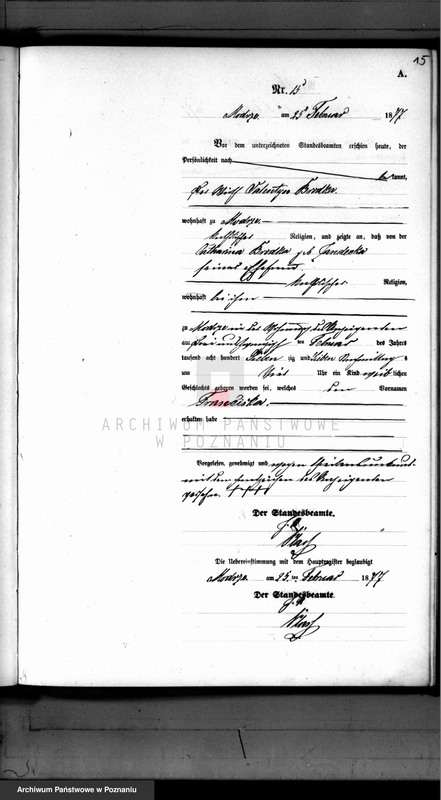 15
A.
Nr. 15
Modrze am 25 Februar 1877
Vor dem unterzeichneten Standesbeamten erschien heute, der
Persönlichkeit nach
kannt,
der Wirth Valentyn Brodka
wohnhaft zu Modrze
katholischer Religion, und zeigte an, daß von der
Catharina Brodka geb.
seiner Ehefrau
katholischer Religion,
wohnhaft bei ihm
zu Modrze in der Wohnung des Anzeigenden
am drei und zwanzigsten Februar des Jahres
tausend acht hundert sieben zig und sieben Vormittag s
um Uhr ein Kind weiblichen
Geschlechts geboren worden sei, welches den Vornamen
Franziska
erhalten habe
ARCHIWUM PAŃSTWOWE
W POZNANIU
Vorgelesen, genehmigt und wegen
mit dem Handzeichen des Anzeigenden
versehen. ++++
Der Standesbeamte.
Die Uebereinstimmung mit dem Hauptregister beglaubigt
Modrze am 25. ten Februar 1877
Der Standesbeamte.
Archiwum Państwowe w Poznaniu